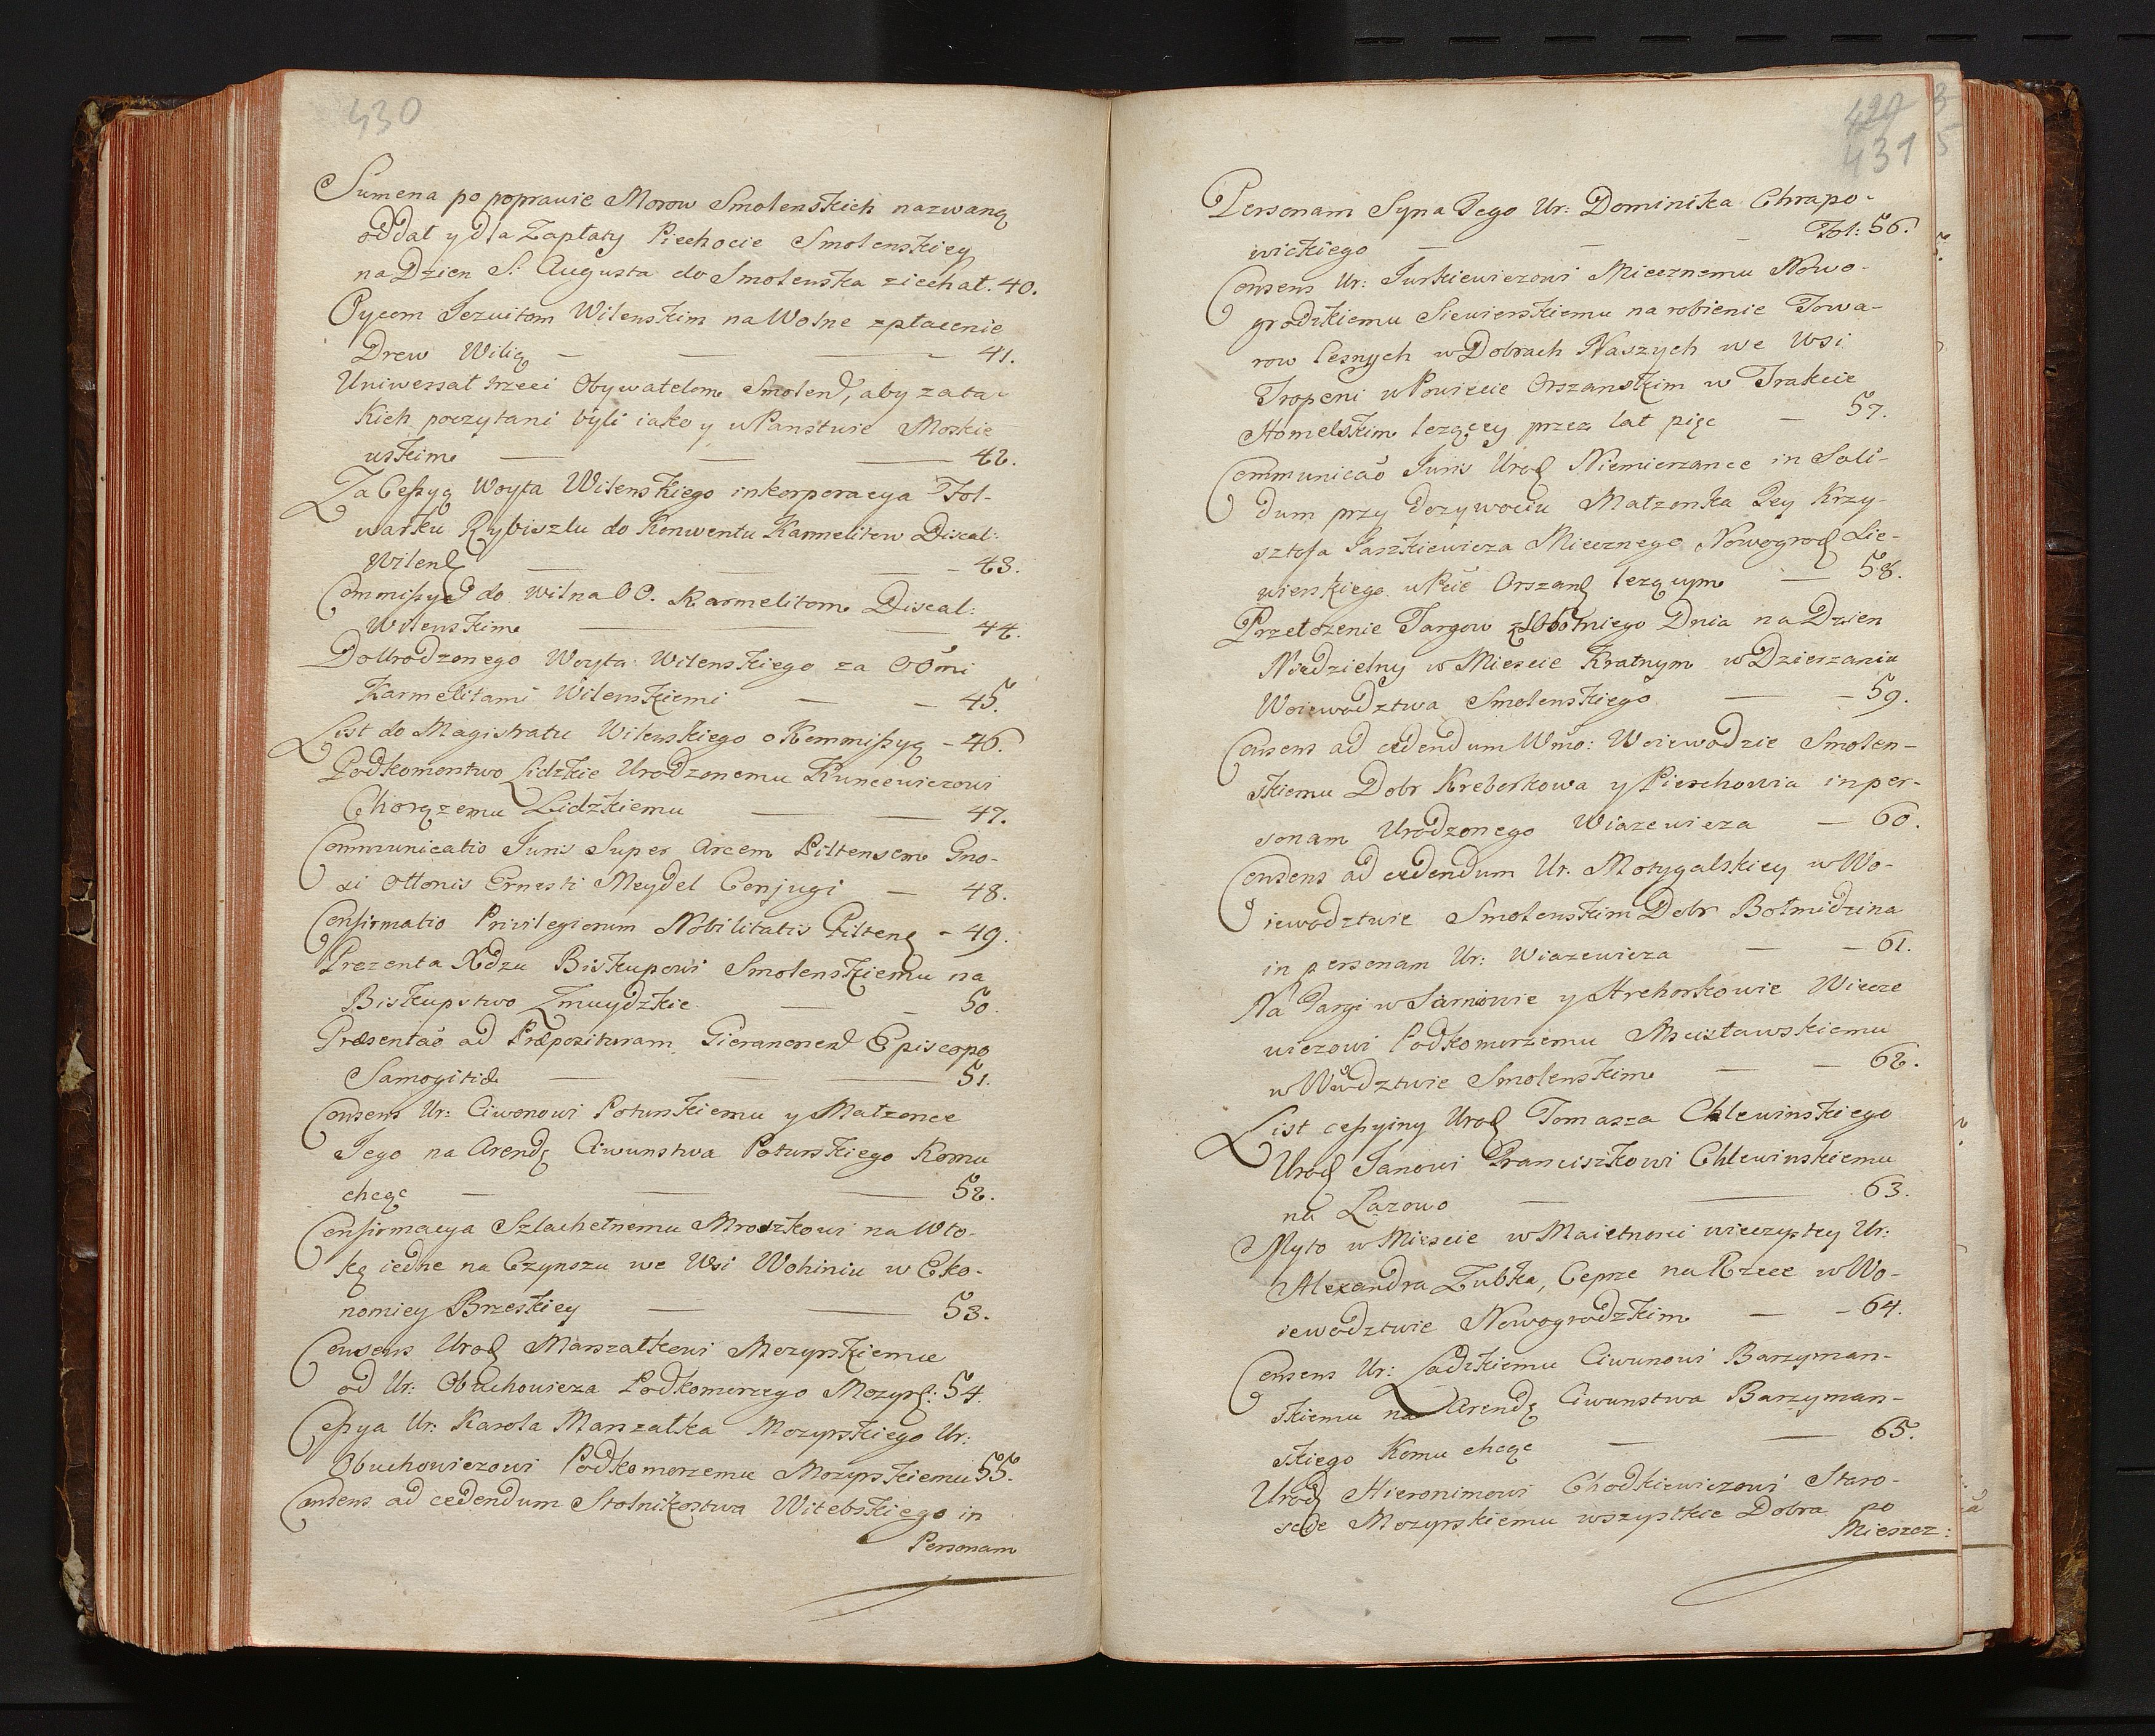 430
Sumena po poprawie Morow Smolenskich nazwaną
oddał y dla Zapłaty Piechocie Smolenskiey
na Dzien S: Augusta do Smolenska ziechał. 40.
Oycom Jezuitom Wilenskim na Wolne zpłacenie
Drew Wilią — — — 41.
Uniwersał trzeci Obywatelom Smolen, aby za ta-
kich poczytani byli iako y w Panstwie Moskie
wskim — — — 42.
Za Cessyą Woyta Wilenskiego inkorporacya Fol-
warku Rybiszlu do Konwentu Karmelitow Discal:
Wilen — — — 43.
Commissya do Wilna OO. Karmelitom Discal:
Wilenskim — — 44.
Do Urodzonego Woyta Wilenskiego za OOmi
Karmelitami Wilenskiemi — — 45.
List do Magistratu Wilenskiego o Kommissyą - 46.
Podkomorstwo Lidzkie Urodzonemu Kuncewiczowi
Chorązemu Lidzkiemu — — 47.
Communicatio Juris Super Arcem Piltensem Gno-
si Ottonis Ernesti Meydel Conjugi — 48.
Confirmatio Privilegiorum Nobilitatis Pilten - 49.
Prezenta Xdzu Biskupowi Smolenskiemu na
Biskupstwo Zmuydzkie — — 50.
Præsentaõ ad Præposituram Gieranonen Episcopo
Samogitiæ — — — 51.
Consens Ur: Ciwonowi Poturskiemu y Małzonce
Jego na Arendę Ciwunstwa Poturskiego Komu
chcąc — — — 52.
Confirmacya Szlachetnemu Mroszkowi na Wło-
kę iedne na Czynszu we Wsi Wohiniu w Eko-
nomiey Brzeskiey — — 53.
Consens Urod Marszałkowi Mozyrskiemu
od Ur: Obuchowicza Podkomorzego Mozyr: 54.
Cessya Ur: Karola Marszałka Mozyrskiego Ur:
Obuchowiczowi Podkomorzemu Mozyrskiemu 55.
Consens ad cedendum Stolnikostwa Witebskiego in
Personam
429 3
431 5
Personam Syna Jego Ur: Dominika Chrapo-
wickiego — — — Fol: 56.
Consens Ur: Jurkiewiczowi Miecznemu Nowo-
grodzkiemu Siewierskiemu na robienie Towa-
row Lesnych w Dobrach Naszych we Wsi
Tropeni w Powiecie Orszanskim w Trakcie
Homelskim lezącey przez lat pięc — 57.
Communicaõ Juris Urod Niemierzance in Soli-
dum przy dozywociu Małzonka Jey Krzy-
sztofa Jaszkiewicza Miecznego Nowogrod Sie-
wierskiego w Pcie Orszan lezącym — 58.
Przełozenie Targow z Sobotniego Dnia na Dzien
Niedzielny w Miescie Kratnym w Dzierzaniu
Woiewodztwa Smolenskiego — — 59.
Consens ad cedendum Wmo: Woiewodzie Smolen-
skiemu Dobr Kreborkowa y Pierchowia in per-
sonam Urodzonego Wiazewicza — 60.
Consens ad cedendum Ur. Motygalskiey w Wo-
iewodztwie Smolenskim Dobr Bołmidzina
in personam Ur: Wiazewicza — — 61.
Na Targi w Sarnowie y Hrehorkowie Wiecze
wiczowi Podkomorzemu Mscisławskiemu
w Wwdztwie Smolenskim — — 62.
List cessyiny Urod Tomasza Chlewinskiego
Urod Janowi Franciszkowi Chlewinskiemu
na Lazowo — — 63.
Myto w Miescie w Maiętnosci wieczystey Ur:
Alexandra Zubka, Ceprze na Rzece w Wo-
iewodztwie Nowogrodzkim — — 64.
Consens Ur: Ładzkiemu Ciwunowi Barzyman-
skiemu na Arendę Ciwunstwa Barzyman-
skiego Komu chcąc — — 65.
Urod Hieronimowi Chodkiewiczowi Staro-
scie Mozyrskiemu wszystkie Dobra po
Mieszcz: